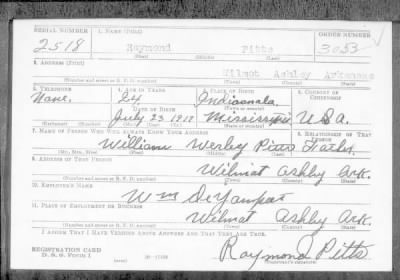 SERIAL NUMBER 1. NAME (Print) ORDER NUMBER
2518 Raymond Pitts 3053
(First) (Middle) (Last)
2. ADDRESS (Print)
Wilmot Ashley Arkansas
(Number and street or R. F. D. number) (Town) (County) (State)
3. TELEPHONE 4. AGE IN YEARS 5. PLACE OF BIRTH 6. COUNTRY OF CITIZENSHIP
None. 24 Indianola
DATE OF BIRTH (Town or county)
July 23 1917 Mississippi U.S.A.
(Exchange) (Number) (Mo.) (Day) (Yr.) (State or country)
7. NAME OF PERSON WHO WILL ALWAYS KNOW YOUR ADDRESS 8. RELATIONSHIP OF THAT PERSON
William Wesley Pitts Father
(Mr., Mrs., Miss) (First) (Middle) (Last)
9. ADDRESS OF THAT PERSON
Wilmot Ashley Ark.
(Number and street or R. F. D. number) (Town) (County) (State)
10. EMPLOYER'S NAME
Wm DeYampat
11. PLACE OF EMPLOYMENT OR BUSINESS
Wilmot Ashley Ark.
(Number and street or R. F. D. number) (Town) (County) (State)
I AFFIRM THAT I HAVE VERIFIED ABOVE ANSWERS AND THAT THEY ARE TRUE.
REGISTRATION CARD
D. S. S. FORM 1
Raymond Pitts
(Registrant's signature)